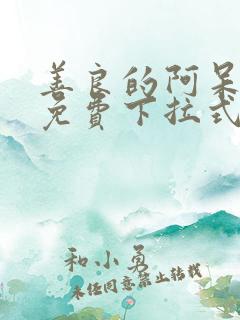 善良的阿呆
免费下拉式
和小勇
未经同意禁止转载